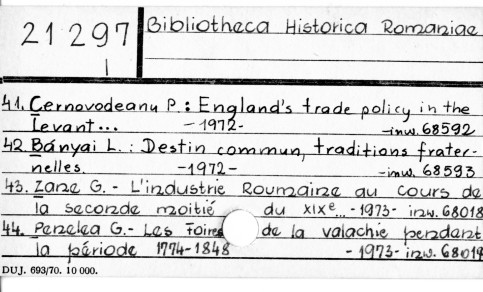 21297
1
Bibliotheca Historica Romaniae
41. Cernovodeanu P.: England's trade policy in the
Levant... -1972- -inv. 68592
42. Bányai L.: Destin commun, traditions frater-
nelles. -1972- -inv. 68593
43. Zane G. - L'industrie Roumaine au cours de
la seconde moitié du XIXe...-1973- inv. 68018
44. Penelea G. - Les Foires de la valachie pendant
la période 1774-1848 -1973- inv. 68019
DUJ. 693/70. 10 000.